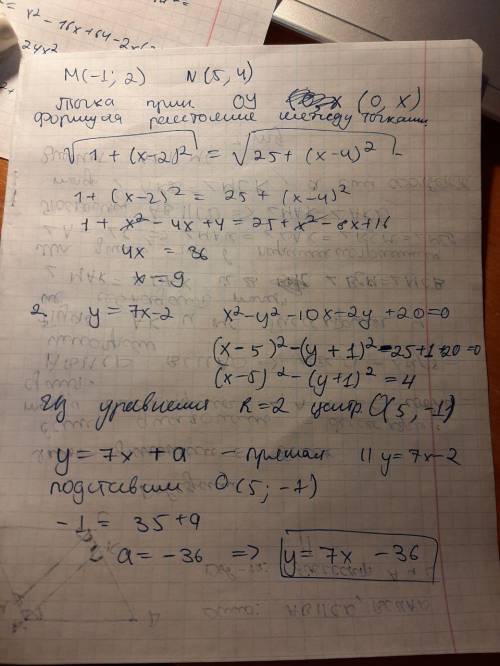 x² - 16x + 64 - 2x
24x²
M(-1; 2) N(5, 4)
Точка прин ОУ (0, x)
формула расстояние между точками
√1 + (x-2)² = √25 + (x-4)²
1 + (x-2)² = 25 + (x-4)²
1 + x² - 4x + 4 = 25 + x² - 8x + 16
4x = 36
x = 9
2. y = 7x - 2 x² - y² - 10x - 2y + 20 = 0
(x-5)² - (y+1)² - 25 + 1 + 20 = 0
(x-5)² - (y+1)² = 4
Из уравнения R = 2 центр O(5, -1)
y = 7x + a - прямая || y = 7x - 2
подставим O(5; -1)
-1 = 35 + a
a = -36 => y = 7x - 36